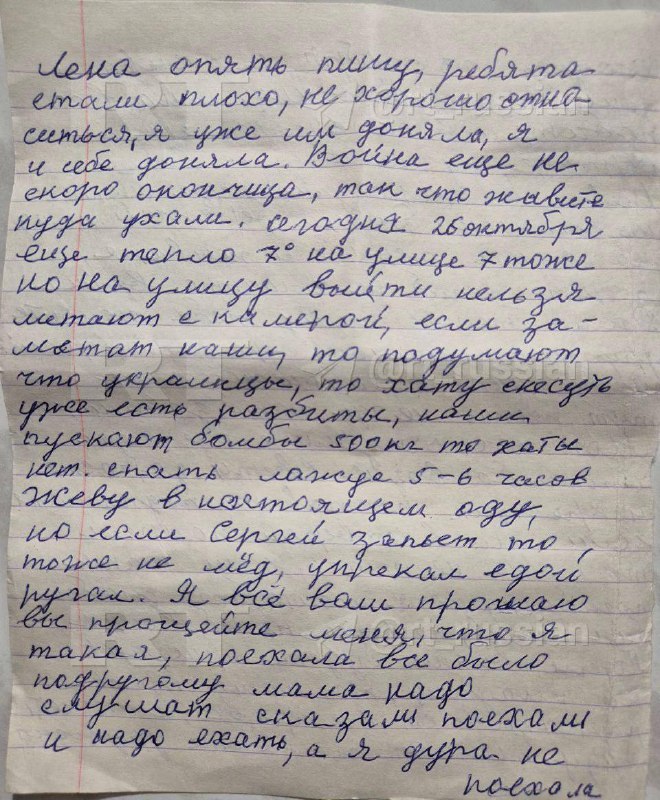 Лена опять пишу, ребята
стали плохо, не хорошо отно-
ситься, я уже им доняла, я
и себе доняла. Война еще не
скоро окончица, так что живите
куда ухали. сегодня 26 октября
еще тепло 7° на улице 7 тоже
но на улицу выйти нельзя
метают с камерой, если за-
метат наши, то подумают
что украинцы, то хату снесуть
уже есть разбиты, наши
пускают бомбы 500 кг то хаты
нет. спать ложуся 5-6 часов
Жеву в настоящем аду,
но если Сергей запьет то,
тоже не мёд, упрекал едой
ругал. Я всё вам прощаю
вы прощейте меня, что я
такая, поехала все было
подругому мама надо
слушат сказали поехали
и надо ехать, а я дура не
поехала
@rt_russian
@rt_russian
@rt_russian